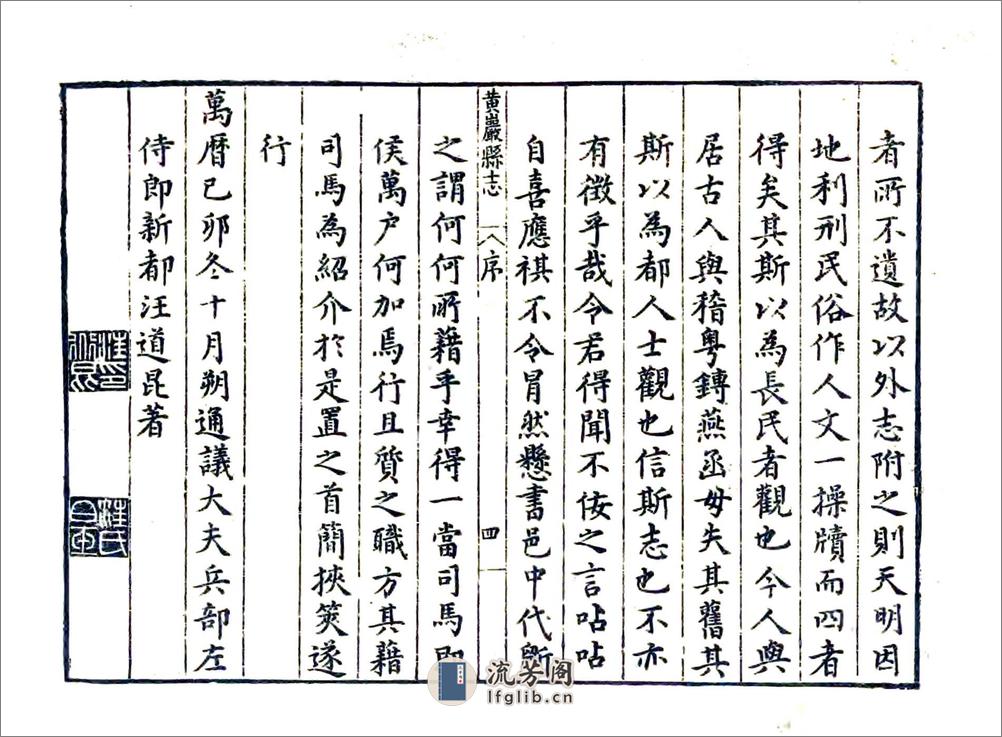 者所不遺故以外志附之則天明因
地利刑民俗作人文一操牘而四者
得矣其斯以為長民者觀也今人與
居古人與稽粤鏄燕函毋失其舊其
斯以為都人士觀也信斯志也不亦
有徵乎哉令君得聞不佞之言呫呫
自喜應祺不令冒然懸書邑中代斲
黄巖縣志 序 四
之謂何何所藉乎幸得一當司馬即
侯萬户何加焉行且質之職方其藉
司馬為紹介於是置之首簡挾筴遂
行
萬曆己卯冬十月朔通議大夫兵部左
侍郎新都汪道昆著
流芳阁
lfglib.cn